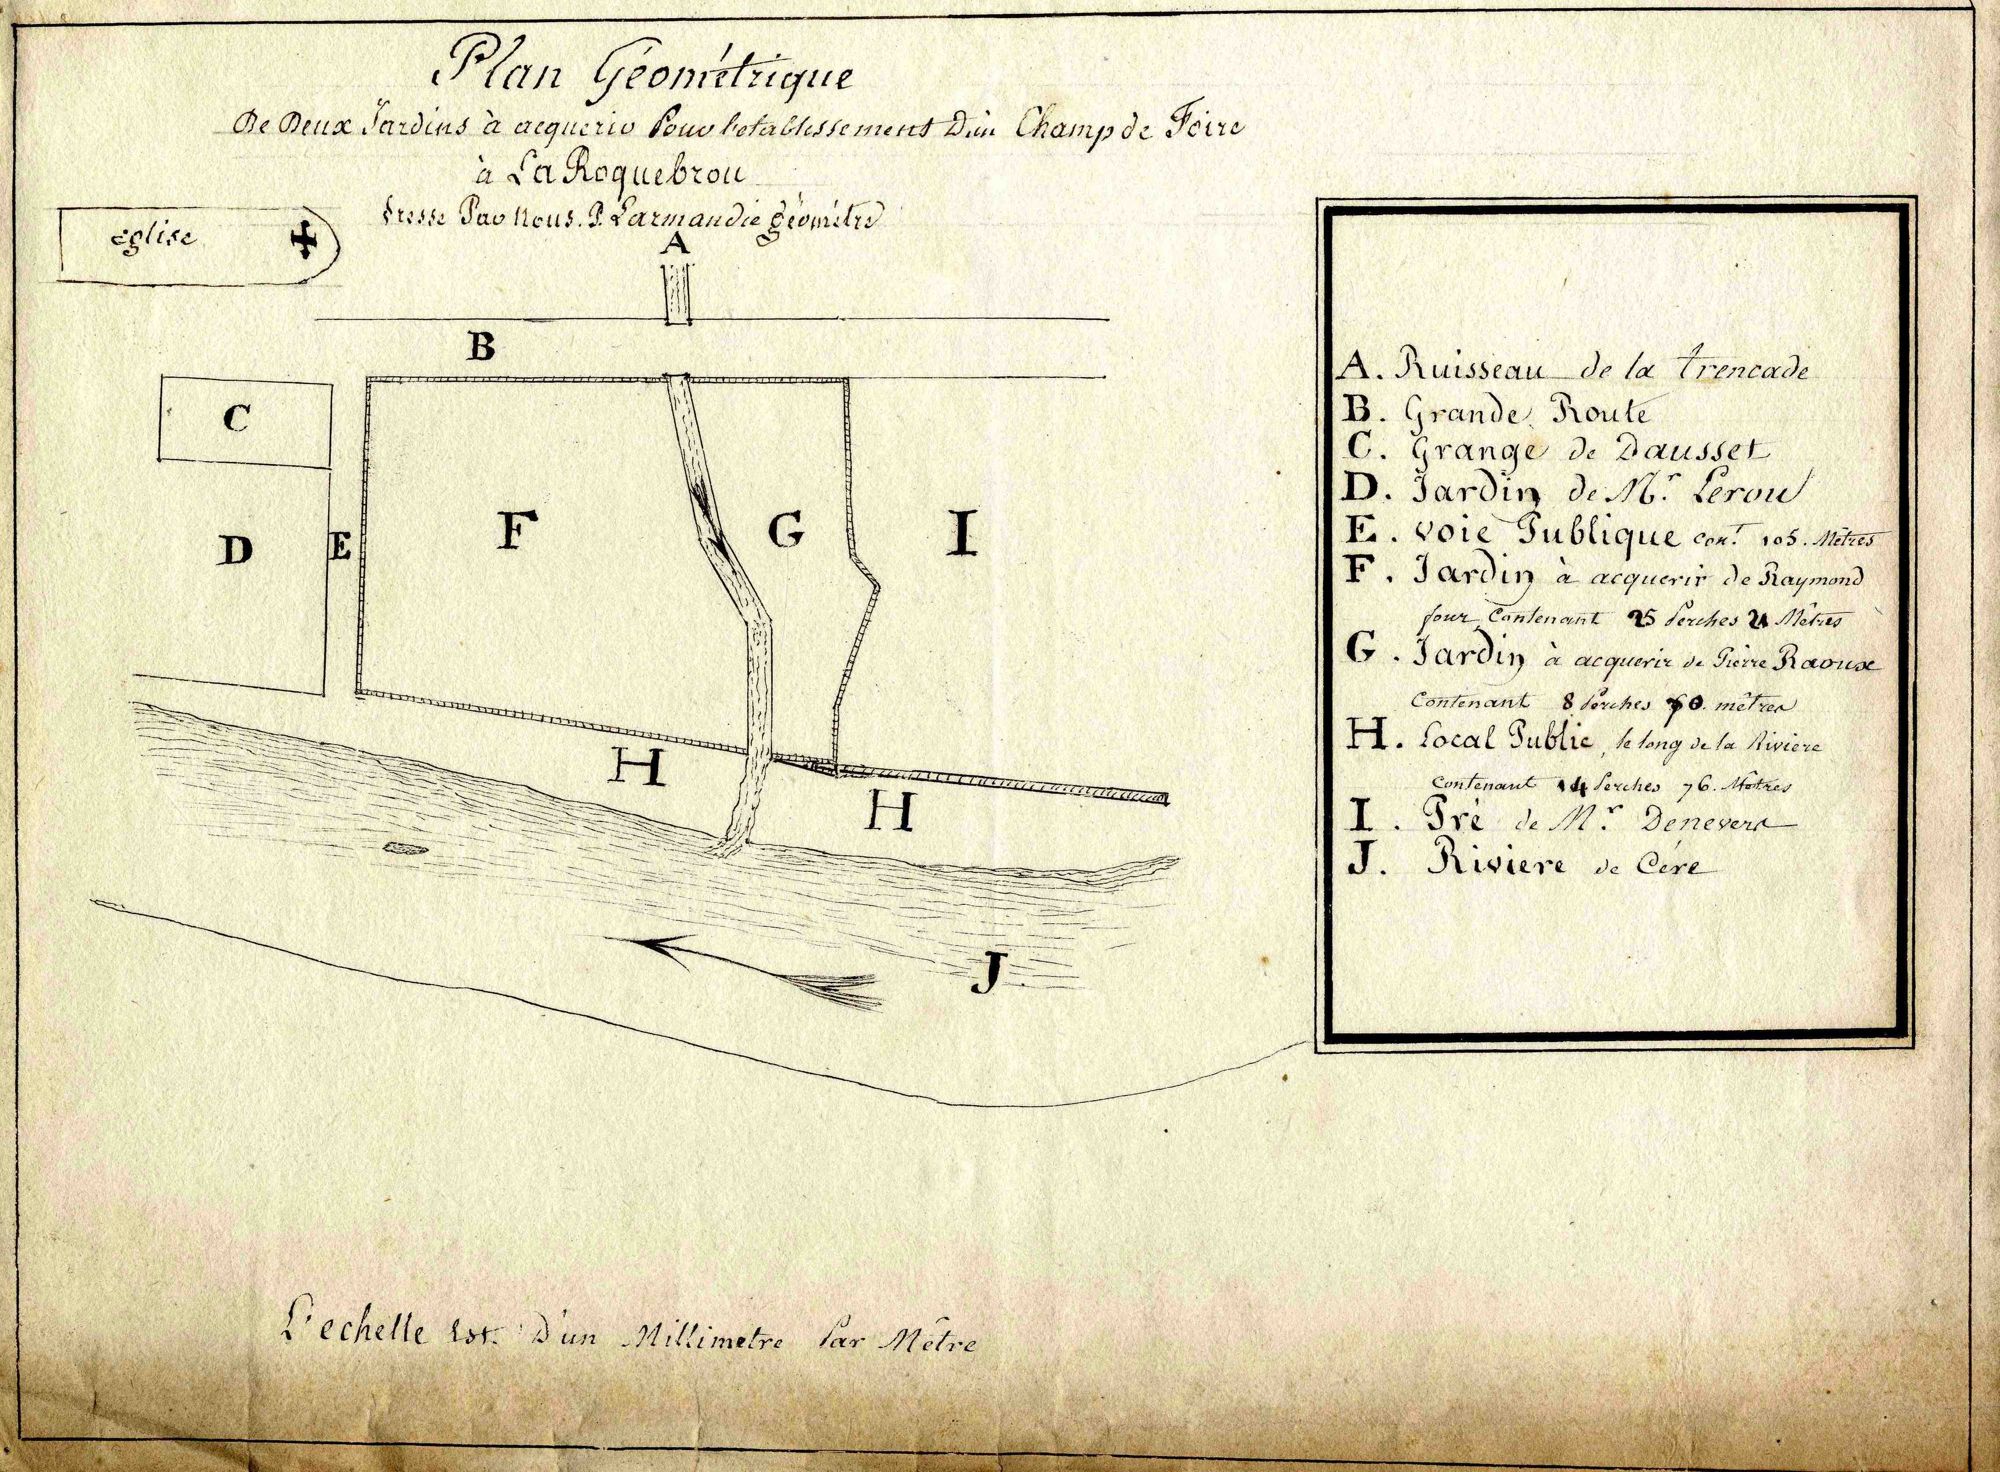 Plan Géométrique
De Deux Jardins à acquerir Pour l'etablissement D'un Champ de Foire
à La Roquebrou
Dressé Par Nous. P. Larmandie géomètre
eglise
A
B
C
D
E
F
G
I
H
H
J.
A. Ruisseau de la trencade
B. Grande Route
C. Grange de Dausset
D. Jardin de Mr. Lerou
E. voie Publique cont. 105. Mètres
F. Jardin à acquerir de Raymond
four Contenant 25 Perches 21 Mètres
G. Jardin à acquerir de Pierre Raoux
Contenant 8 Perches 70. mètres
H. Local Public, le long de la Riviere
Contenant 14 Perches 76. Mètres
I. Pré de Mr. Denevers
J. Riviere de Cère
L'echelle Est. D'un Millimetre Par Mètre